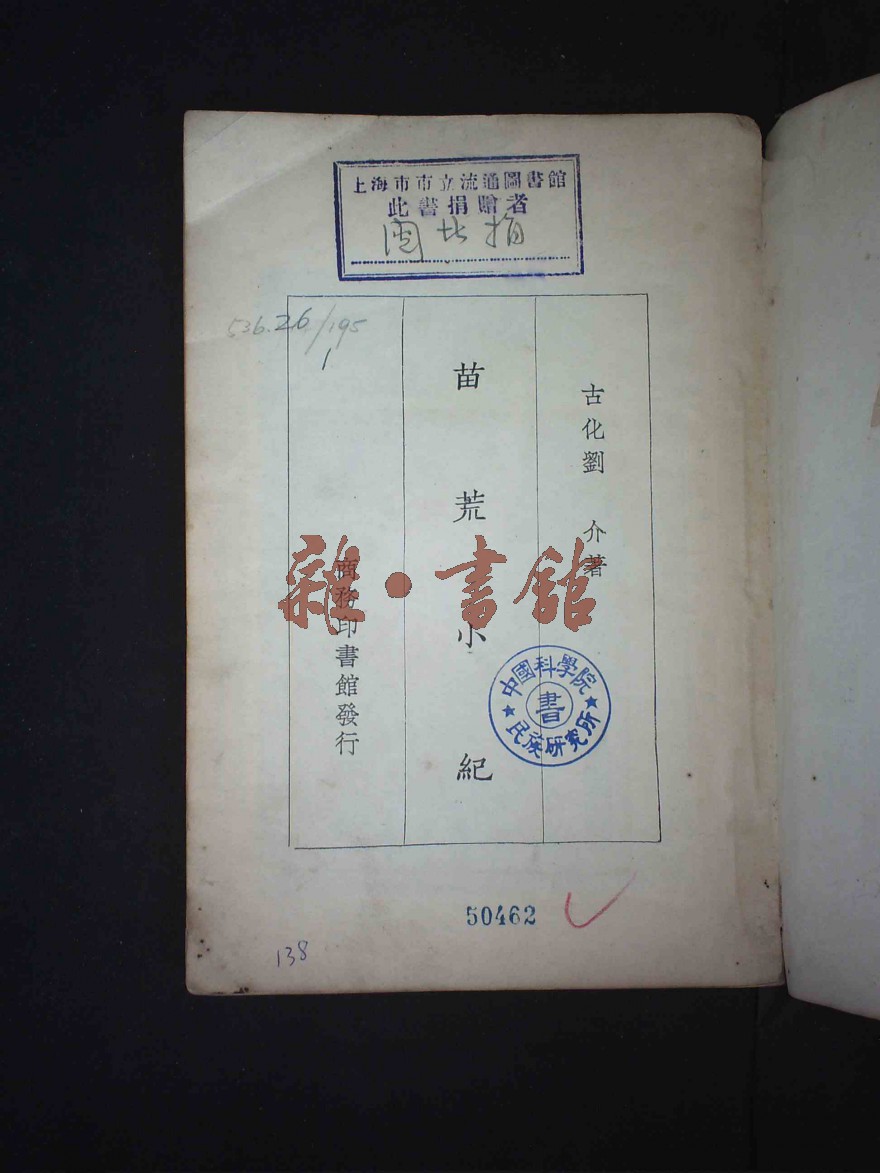 上海市市立流通圖書館
此書捐贈者
闽北捐
536.26/195
1
古化劉 介著
苗荒小紀
商務印書館發行
雜·書館
中國科學院
書
民族研究所
50462
138